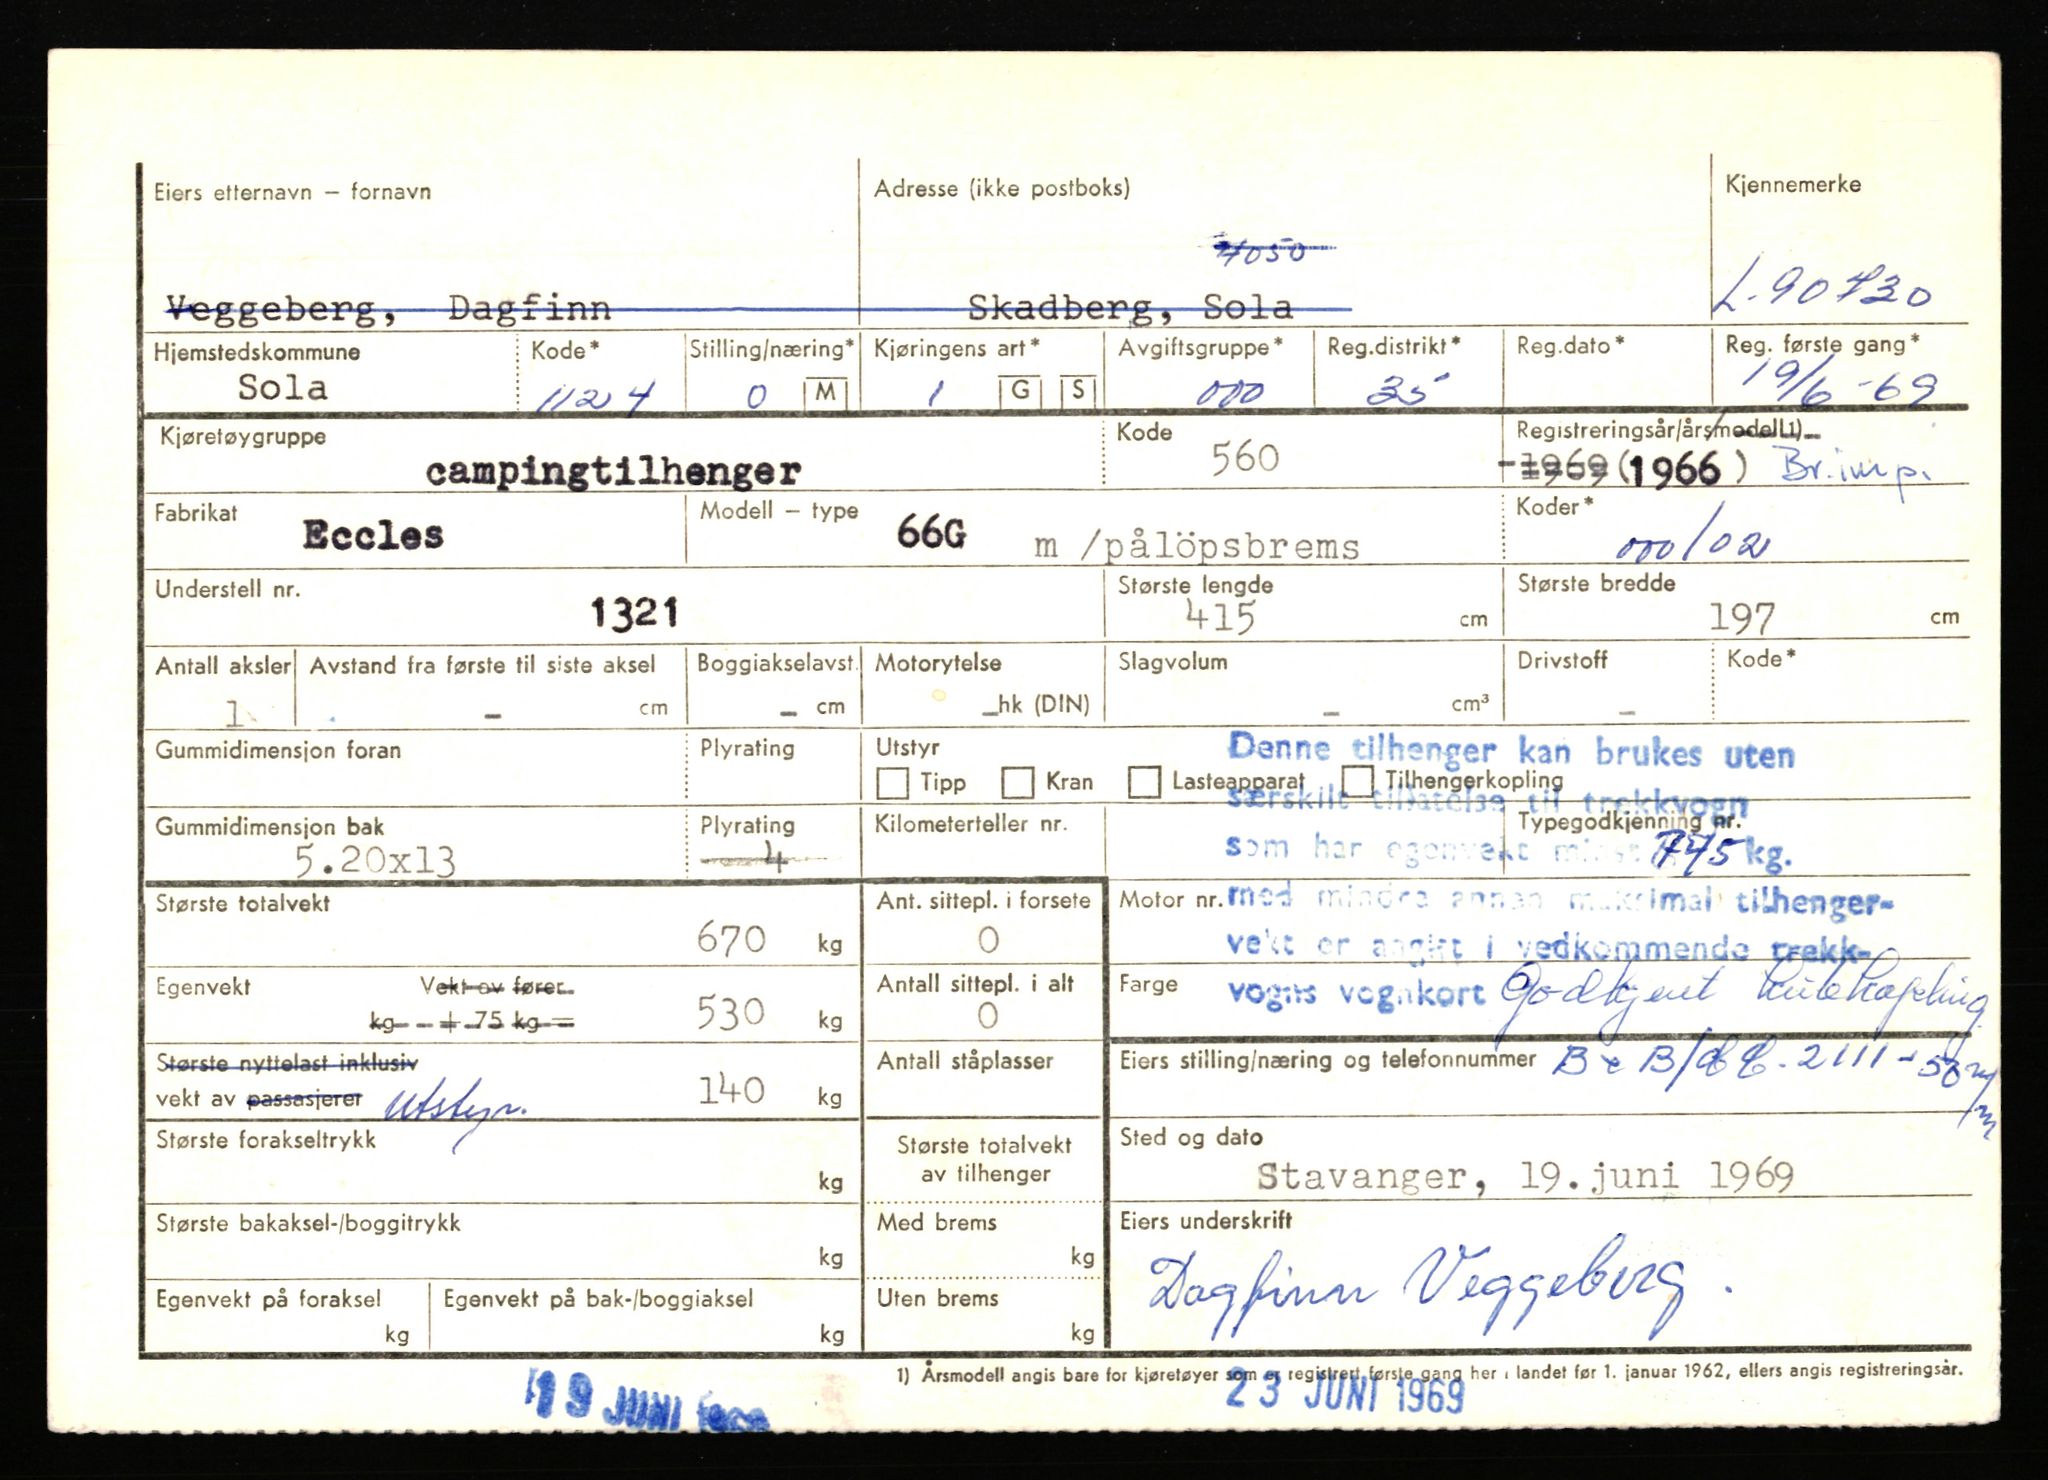 Eiers etternavn – fornavn Adresse (ikke postboks) Kjennemerke
4050
Veggeberg, Dagfinn Skadberg, Sola L-90730
Hjemstedskommune Kode* Stilling/næring* Kjøringens art* Avgiftsgruppe* Reg.distrikt* Reg.dato* Reg. første gang*
Sola 1124 0 M 1 G S 000 35 19/6-69
Kjøretøygruppe Kode Registreringsår/årsmodell1)
campingtilhenger 560 1969 (1966) Br.imp.
Fabrikat Modell – type Koder*
Eccles 66G m /pålöpsbrems 000/02
Understell nr. Største lengde Største bredde
1321 415 cm 197 cm
Antall aksler Avstand fra første til siste aksel Boggiakselavst. Motorytelse Slagvolum Drivstoff Kode*
1 – cm – cm –hk (DIN) – cm³ –
Gummidimensjon foran Plyrating Utstyr
Tipp Kran Lasteapparat Tilhengerkopling
Denne tilhenger kan brukes uten
særskilt tillatelse til trekkvogn
som har egenvekt minst 775 kg.
med mindre annen maksimal tilhenger-
vekt er angitt i vedkommende trekk-
vogns vognkort Godkjent
Gummidimensjon bak Plyrating Kilometerteller nr. Typegodkjenning nr.
5.20x13 4
Største totalvekt Ant. sittepl. i forsete Motor nr.
670 kg 0
Egenvekt Vekt av fører Antall sittepl. i alt Farge
kg + 75 kg = 530 kg 0
Største nyttelast inklusiv Antall ståplasser Eiers stilling/næring og telefonnummer
vekt av passasjerer utstyr. 140 kg
Største forakseltrykk Største totalvekt Sted og dato
kg av tilhenger Stavanger, 19.juni 1969
Største bakaksel-/boggitrykk Med brems Eiers underskrift
kg kg
Dagfinn Veggeberg.
Egenvekt på foraksel Egenvekt på bak-/boggiaksel Uten brems
kg kg kg
1) Årsmodell angis bare for kjøretøyer som er registrert første gang her i landet før 1. januar 1962, ellers angis registreringsår.
19 JUNI 23 JUNI 1969